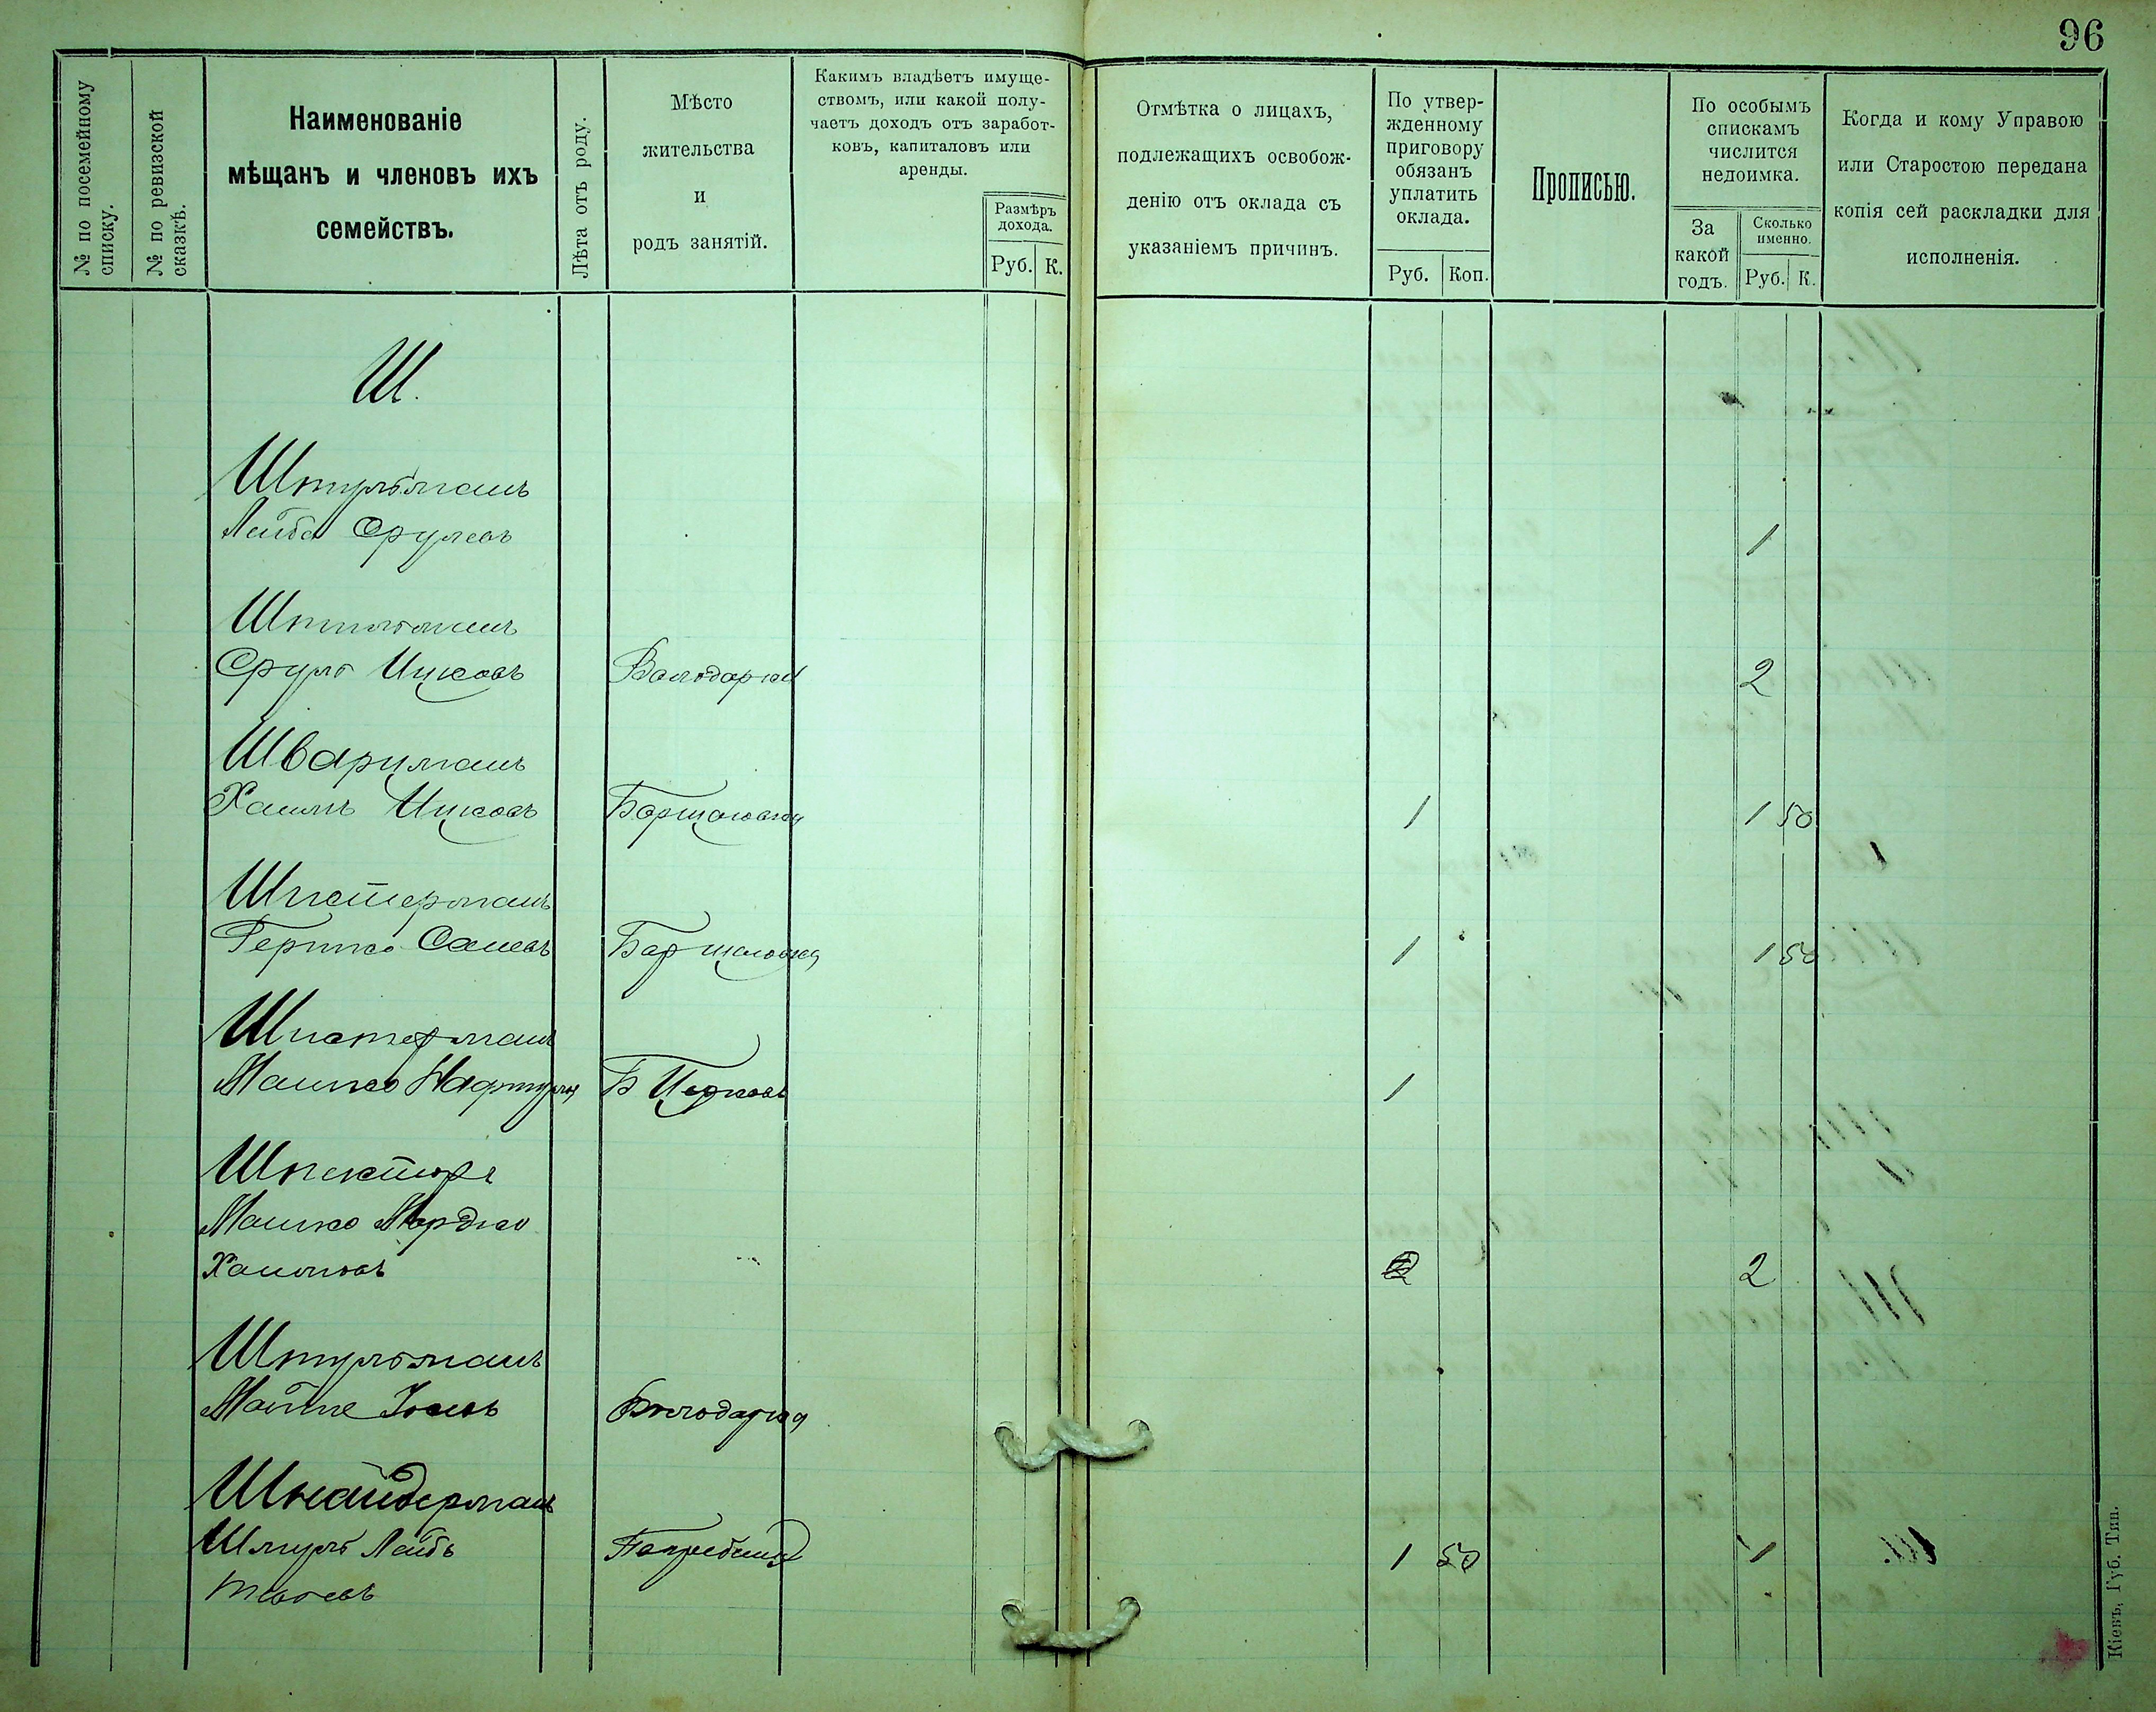 96
№ по посемейному
списку.
№ по ревизской
сказкѣ.
Наименованіе
мѣщанъ и членовъ ихъ
семействъ.
Лѣта отъ роду.
Мѣсто
жительства
и
родъ занятій.
Какимъ владѣетъ имуще-
ствомъ, или какой полу-
чаетъ доходъ отъ заработ-
ковъ, капиталовъ или
аренды.
Размѣръ
дохода.
Руб. К.
Отмѣтка о лицахъ,
подлежащихъ освобож-
денію отъ оклада съ
указаніемъ причинъ.
По утвер-
жденному
приговору
обязанъ
уплатить
оклада.
Руб. Коп.
Прописью.
По особымъ
спискамъ
числится
недоимка.
За
какой
годъ.
Сколько
именно.
Руб. К.
Когда и кому Управою
или Старостою передана
копія сей раскладки для
исполненія.
Ш.
Штульманъ
Лейба Срулевъ 1
Штильманъ
Сруль Ицковъ Володарка 2
Шварцманъ
Хаимъ Ицковъ Борщаговка 1 1 50
Шпетерманъ
Гершко Борщаговка 1 1 50
Шпетерманъ
Мошко Нафтула Б Церковь 1
Шпекторъ
Мошко Мордко
Хаимовъ 2
Штульманъ
Володарка
Шнайдерманъ
Шмуль Лейбъ Погребище 1 50 1
Кіевъ, Губ. Тип.